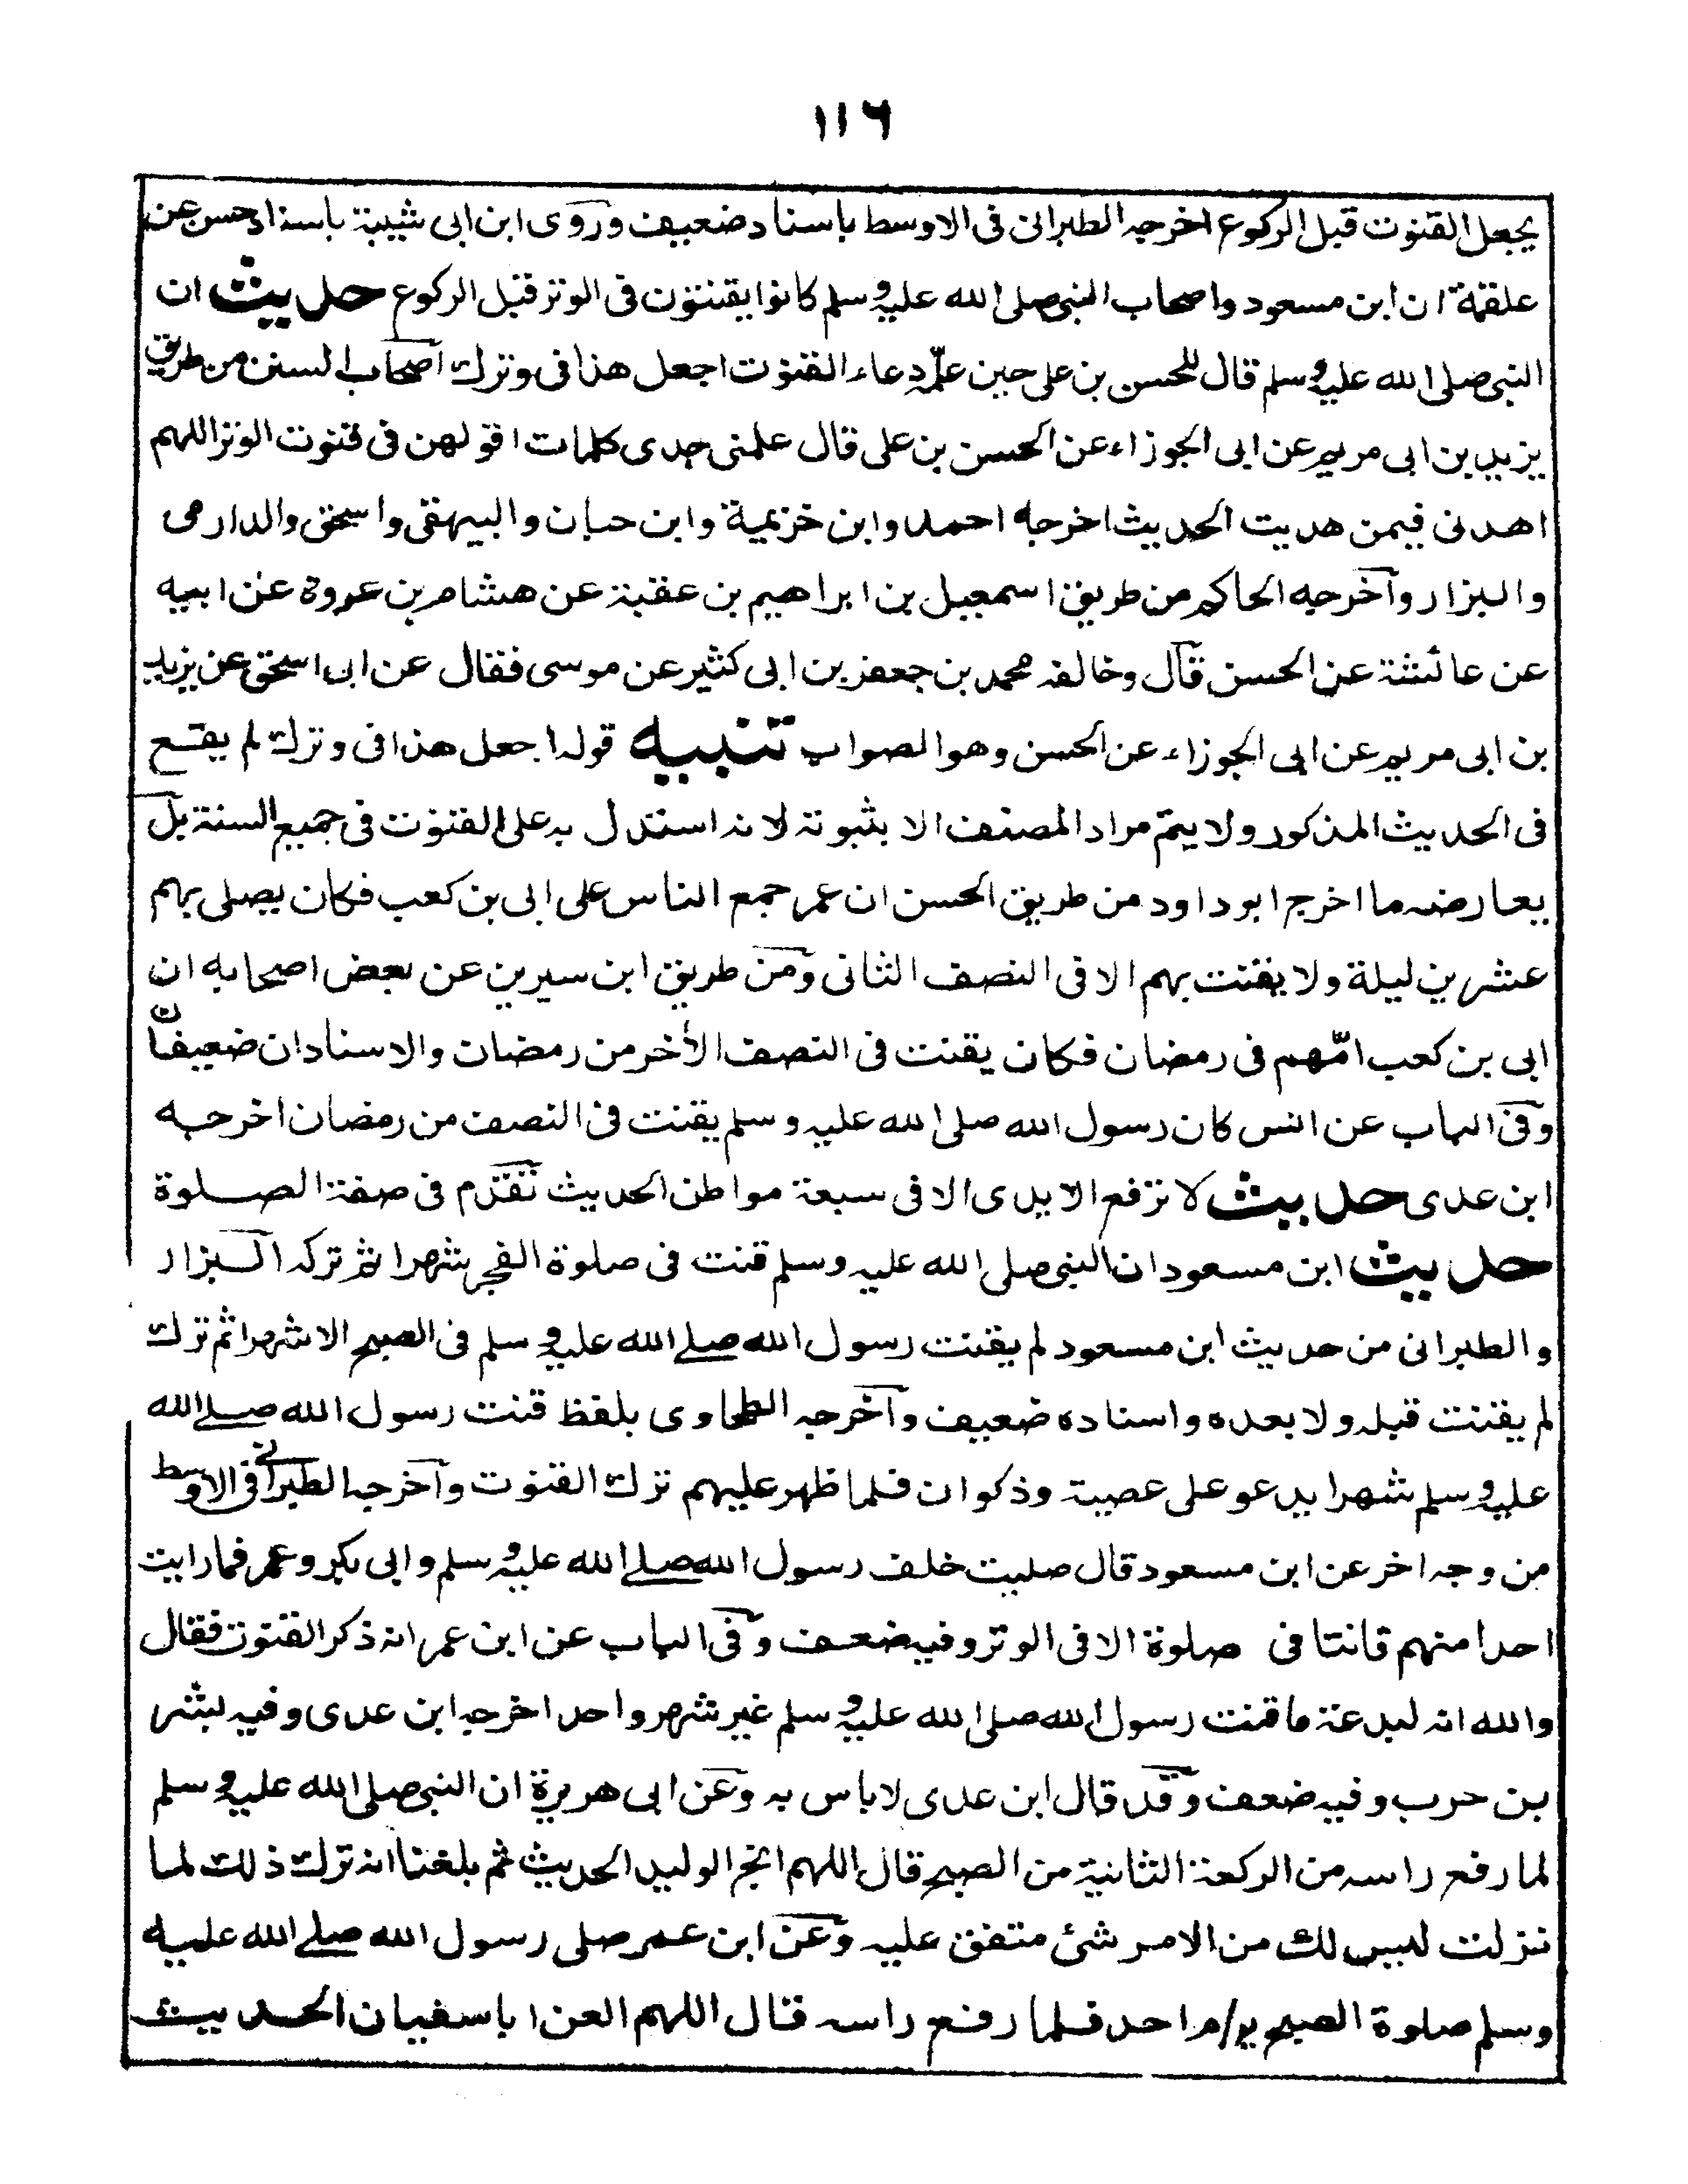 ١١٦
يجعل القنوت قبل الركوع اخرجه الطبرانى فى الاوسط باسناد ضعيف وروى ابن ابى شيبة باسناد حسن عن
علقمة ان ابن مسعود واصحاب النبى صلى الله عليه وسلم كانوا يقنتون فى الوتر قبل الركوع حديث ان
النبى صلى الله عليه وسلم قال للحسن بن على حين علّمه دعاء القنوت اجعل هذا فى وترك اصحاب السنن من طريق
يزيد بن ابى مريم عن ابى الجوزاء عن الحسن بن على قال علمنى جدى كلمات اقولهن فى قنوت الوتر اللهم
اهدنى فيمن هديت الحديث اخرجه احمد وابن خزيمة وابن حبان والبيهقى واسحق والدارمى
والبزار وآخرجه الحاكم من طريق اسمعيل بن ابراهيم بن عقبة عن هشام بن عروة عن ابيه
عن عائشة عن الحسن قال وخالفه محمد بن جعفر بن ابى كثير عن موسى فقال عن ابى اسحق عن يزيد
بن ابى مريم عن ابى الجوزاء عن الحسن وهو الصواب تنبيه قوله اجعل هذا فى وترك لم يقع
فى الحديث المذكور ولا يتم مراد المصنف الا بثبوته لانه استدل به على القنوت فى جميع السنة بل
يعارضه ما اخرج ابو داود من طريق الحسن ان عمر جمع الناس على ابى بن كعب فكان يصلى بهم
عشرين ليلة ولا يقنت بهم الا فى النصف الثانى ومن طريق ابن سيرين عن بعض اصحابه ان
ابى بن كعب امّهم فى رمضان فكان يقنت فى النصف الأخر من رمضان والاسنادان ضعيفان
وفى الباب عن انس كان رسول الله صلى الله عليه وسلم يقنت فى النصف من رمضان اخرجه
ابن عدى حديث لا ترفع الايدى الا فى سبعة مواطن الحديث تقدم فى صفة الصلوة
حديث ابن مسعود ان النبى صلى الله عليه وسلم قنت فى صلوة الفجر شهرا ثم تركه البزار
والطبرانى من حديث ابن مسعود لم يقنت رسول الله صلے الله عليه وسلم فى الصبح الا شهرا ثم ترك
لم يقنت قبله ولا بعده واسناده ضعيف وآخرجه الطحاوى بلفظ قنت رسول الله صلے الله
عليه وسلم شهرا يدعو على عصية وذكوان فلما ظهر عليهم ترك القنوت وآخرجه الطبرانى فى الاوسط
من وجه اخر عن ابن مسعود قال صليت خلف رسول الله صلے الله عليه وسلم وابى بكر وعمر فما رايت
احدا منهم قانتا فى صلوة الا فى الوتر وفيه ضعف وفى الباب عن ابن عمر انه ذكر القنوت فقال
والله انه لبدعة ما قنت رسول الله صلى الله عليه وسلم غير شهر واحد اخرجه ابن عدى وفيه بشر
بن حرب وفيه ضعف وقد قال ابن عدى لا باس به وعن ابى هريرة ان النبى صلى الله عليه وسلم
لما رفع راسه من الركعة الثانية من الصبح قال اللهم انج الوليد الحديث ثم بلغنا انه ترك ذلك لما
نزلت ليس لك من الامر شئ متفق عليه وعن ابن عمر صلى رسول الله صلے الله عليه
وسلم صلوة الصبح يوم احد فلما رفع راسه قال اللهم العن ابا سفيان الحديث